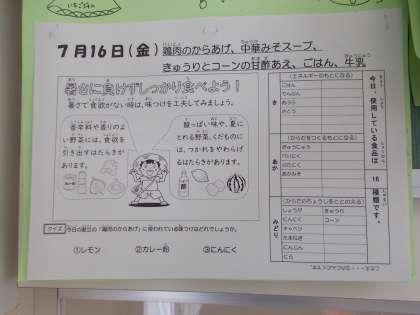 7月16日(金)
鶏肉のからあげ、中華みそスープ、
きゅうりとコーンの甘酢あえ、ごはん、牛乳
暑さに負けずしっかり食べよう!
暑さで食欲がない時は、味つけを工夫してみましょう。
香辛料や香りのよ
い野菜には、食欲を
引き出すはたらきが
あります。
酸っぱい味や、夏に
とれる野菜、くだものに
は、つかれをやわらげ
るはたらきがあります。
クイズ 今日の献立の「鶏肉のからあげ」に使われている味つけはどれでしょうか。
①レモン ②カレー粉 ③にんにく
今日、使用している食品は 16 種類です。
き
(エネルギーのもとになる)
ごはん
でんぷん
あぶら
さとう
あか
(からだをつくるもとになる)
ぎゅうにゅう
とりにく
みどり
(からだのちょうしをととのえる)
しょうが きゅうり
にんにく コーン
キャベツ
たまねぎ
にんじん
にら